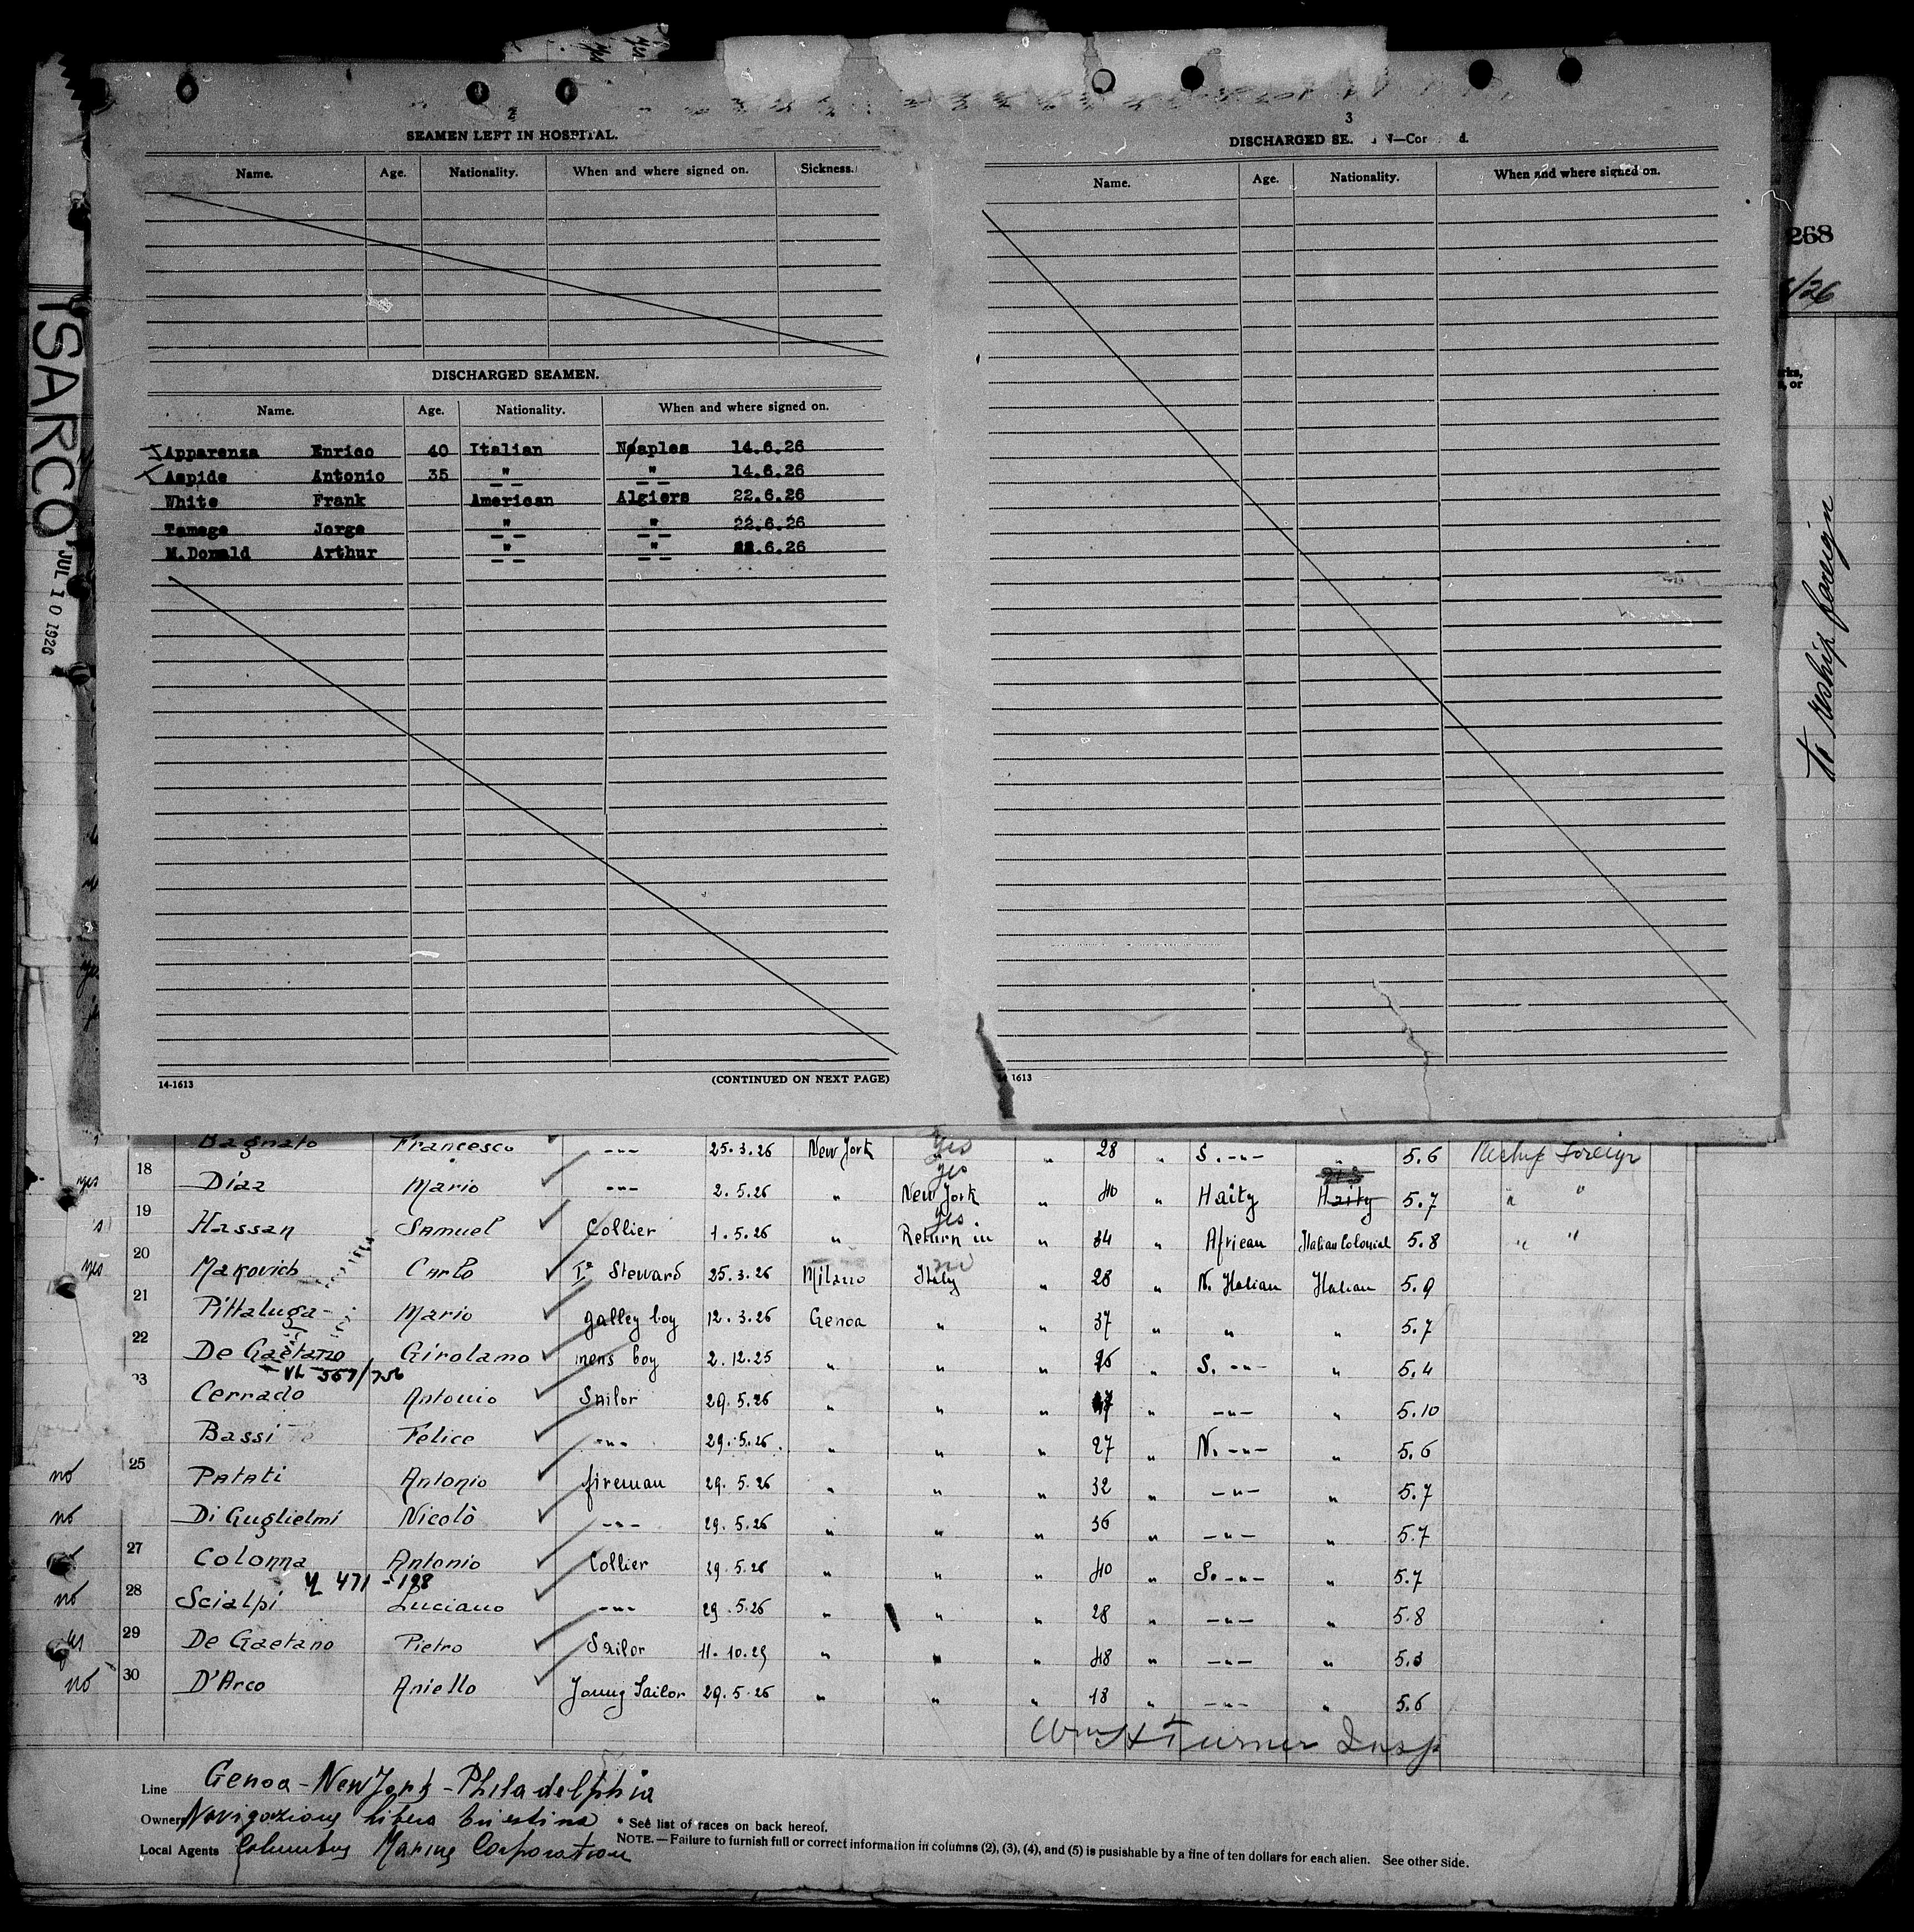 2
SEAMEN LEFT IN HOSPITAL.
Name. Age. Nationality. When and where signed on. Sickness.
DISCHARGED SEAMEN.
Name. Age. Nationality. When and where signed on.
Apparenza Enrico 40 Italian Naples 14.6.26
Aspide Antonio 35 -"- -"- 14.6.26
White Frank American Algiers 22.6.26
Tamege Jorge -"- -"- 22.6.26
M.Donald Arthur -"- -"- 22.6.26
14-1613 (CONTINUED ON NEXT PAGE)
3
DISCHARGED SE N—Cor d.
Name. Age. Nationality. When and where signed on.
1613
ISARCO
JUL 10 1926
268
/26
rks,
, or
to reship foreign
Bagnato Francesco -"- 25.3.26 New York yes " 28 " S. -"- " 5.6 Reship Foreign
18 yes Diaz Mario -"- 2.5.26 " yes New York " 40 " Haity Haity 5.7 " "
19 Hassan Samuel Collier 1.5.26 " yes Return in " 34 " African Italian Colonial 5.8 " "
20 yes Makovich Carlo Steward 25.3.26 Milazzo Italy " 28 " N. Italian Italian 5.9
21 Pittaluga Mario galley boy 12.3.26 Genoa " " 37 " " " 5.7
22 De Gaetano Girolamo mens boy 2.12.25 " " " 26 " S. -"- " 5.4
VL 567/756
23 Cerrado Antonio Sailor 29.5.26 " " " 47 " -"- " 5.10
Bassi Felice -"- 29.5.26. " " " 27 " N. -"- " 5.6
25 no Patati Antonio fireman 29.5.26 " " " 32 " -"- " 5.7
no Di Guglielmi Nicolò -"- 29.5.26 " " " 36 " -"- " 5.7
27 Colonna Antonio Collier 29.5.26 " " " 40 " S. -"- " 5.7
471-198
28 no Scialpi Luciano -"- 29.5.26 " " " 28 " -"- " 5.8
29 yes De Gaetano Pietro Sailor 11.10.25 " " " 48 " -"- " 5.3
30 no D'Arco Aniello Young Sailor 29.5.26 " " " 18 " -"- " 5.6
Wm H Turner Insp
Line Genoa - New York - Philadelphia
Owners Navigazione Libera Triestina * See list of races on back hereof.
Local Agents Columbus Marine Corporation NOTE.—Failure to furnish full or correct information in columns (2), (3), (4), and (5) is punishable by a fine of ten dollars for each alien. See other side.